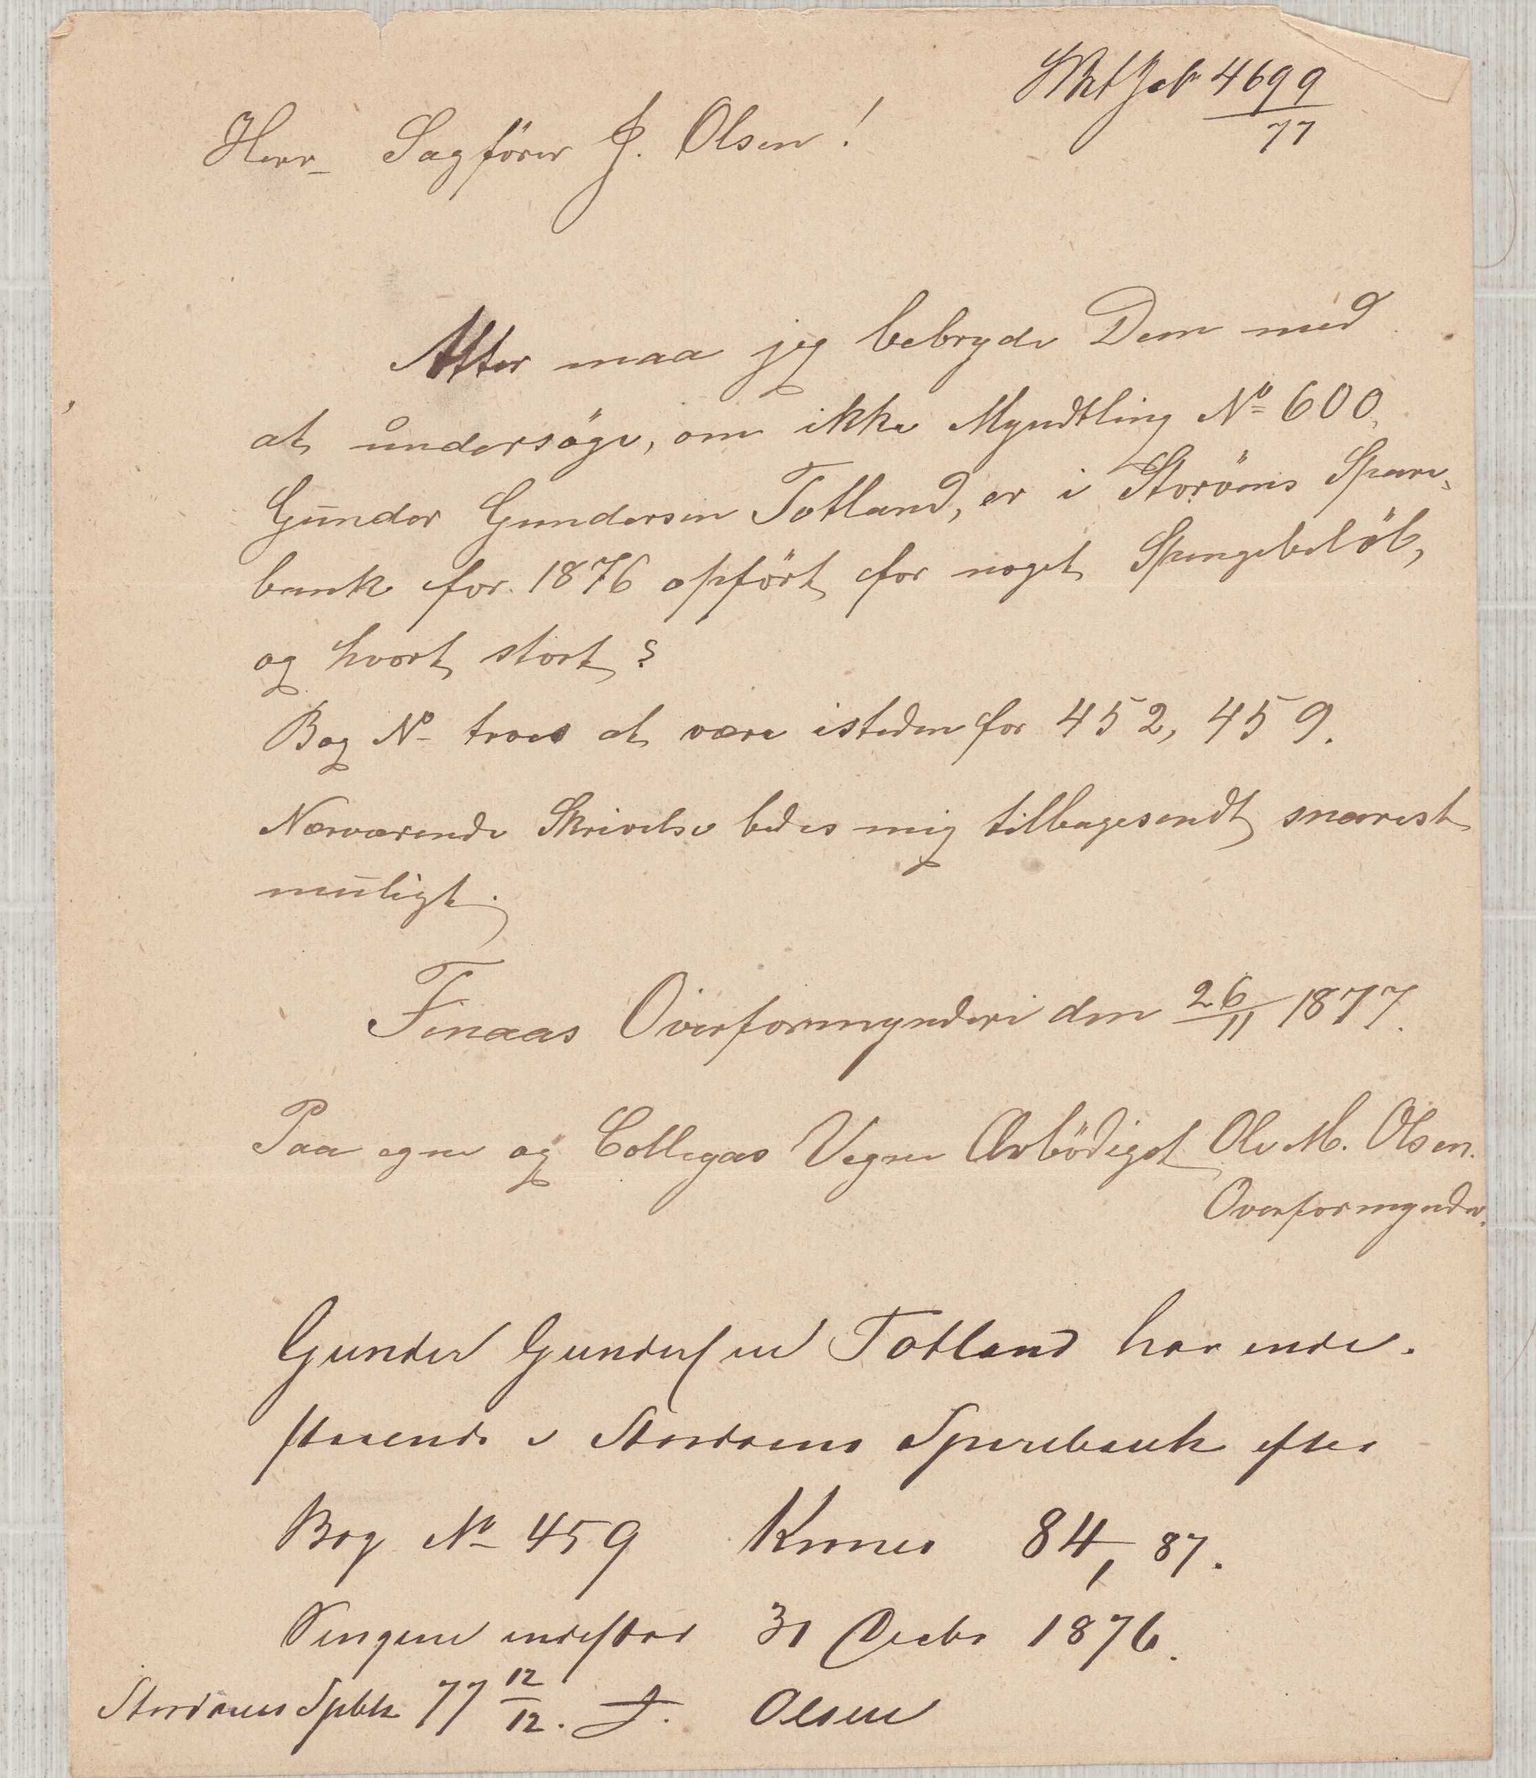 4699
77
Herr Sagförer J. Olsen!
Atter maa jeg bebryde Dem med
at undersöge, om ikke Myndtling No 600,
Gunder Gundersen Totland, er i Storöens Spare-
bank for 1876 opfört for noget Spengebelöb,
og hvort stort?
Bog No troes at være istedenfor 452, 459.
Nærværende Skrivelse bedes mig tilbagesendt snarest
muligt.
Finaas Overformynderi den 26/11 1877.
Paa egne og Collegas Vegne Ærbödigst Ole M. Olsen.
Overformynder.
Gunder Gundersen Totland har inde-
staaende i Stordöens Sparebank efter
Bog No 459 Kroner 84,87.
Pengene indestod 31 Decbr 1876.
Stordöens Spbk 77 12/12. J. Olsen